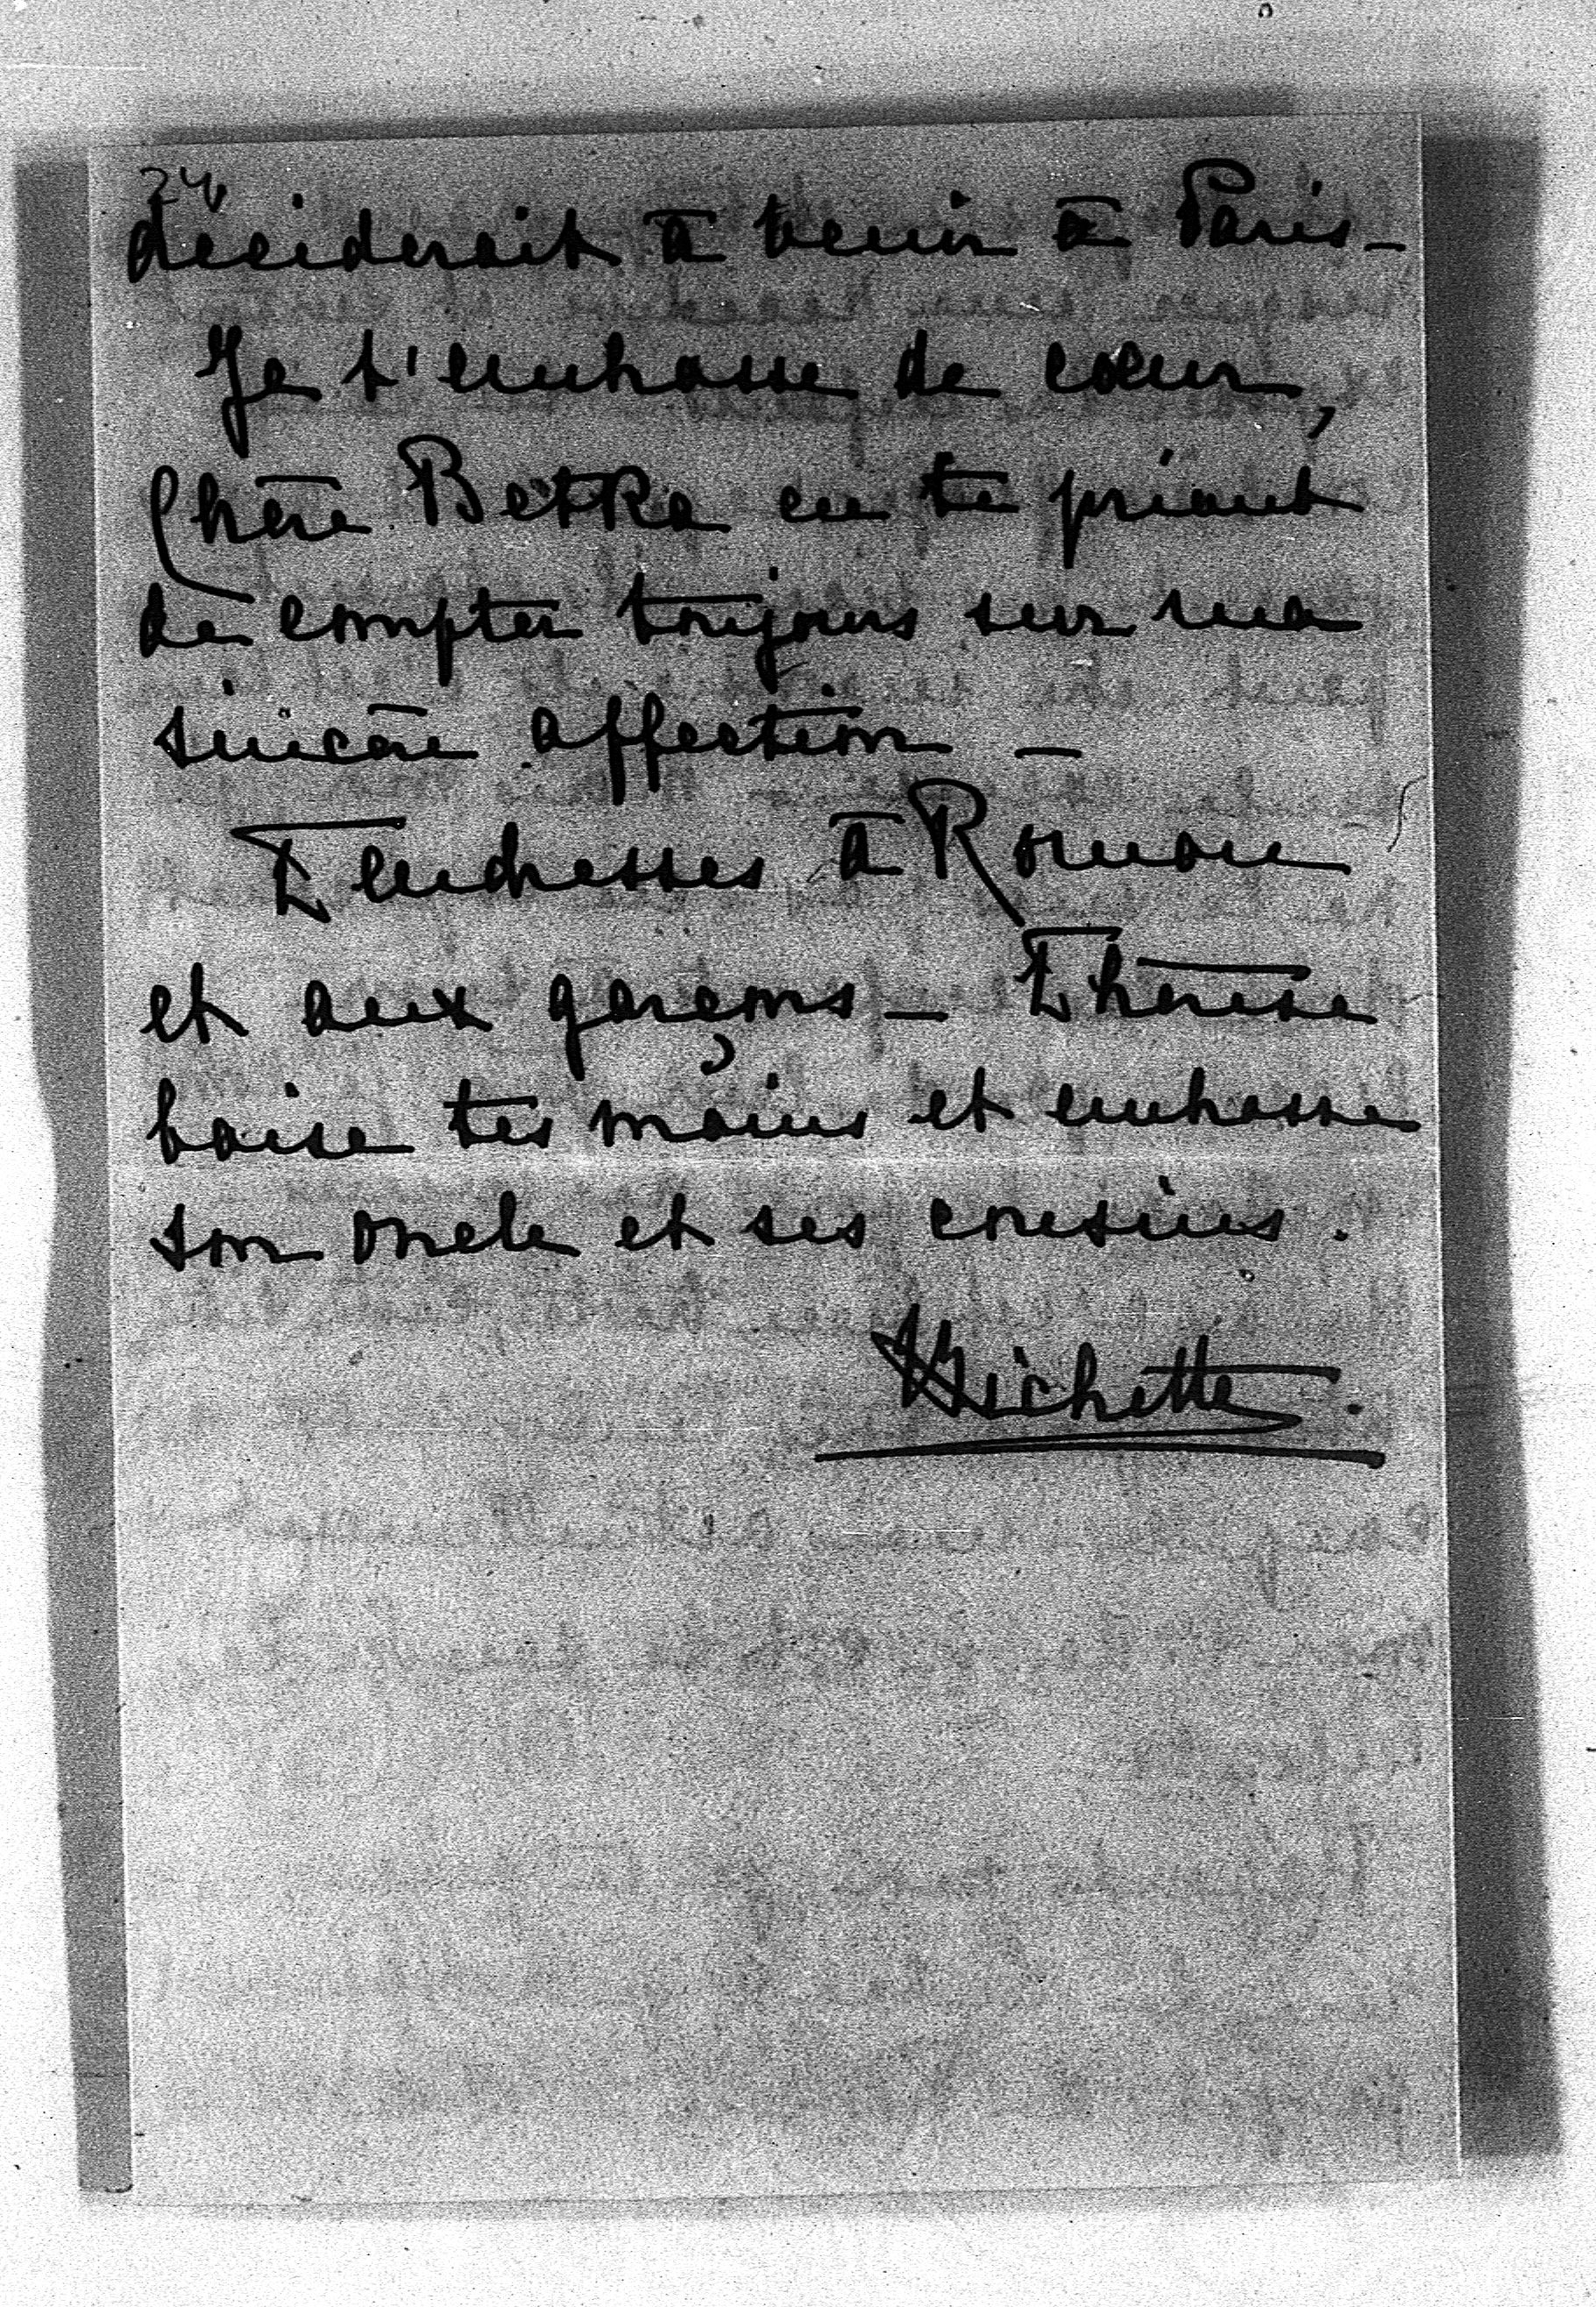 24
déciderait à venir à Paris –
Je t'embrasse de cœur,
Chère Betka en te priant
de compter toujours sur ma
sincère affection –
Tendresses à Roman
et aux garçons – Thérèse
baise tes mains et embrasse
son oncle et ses cousins.
Michette.